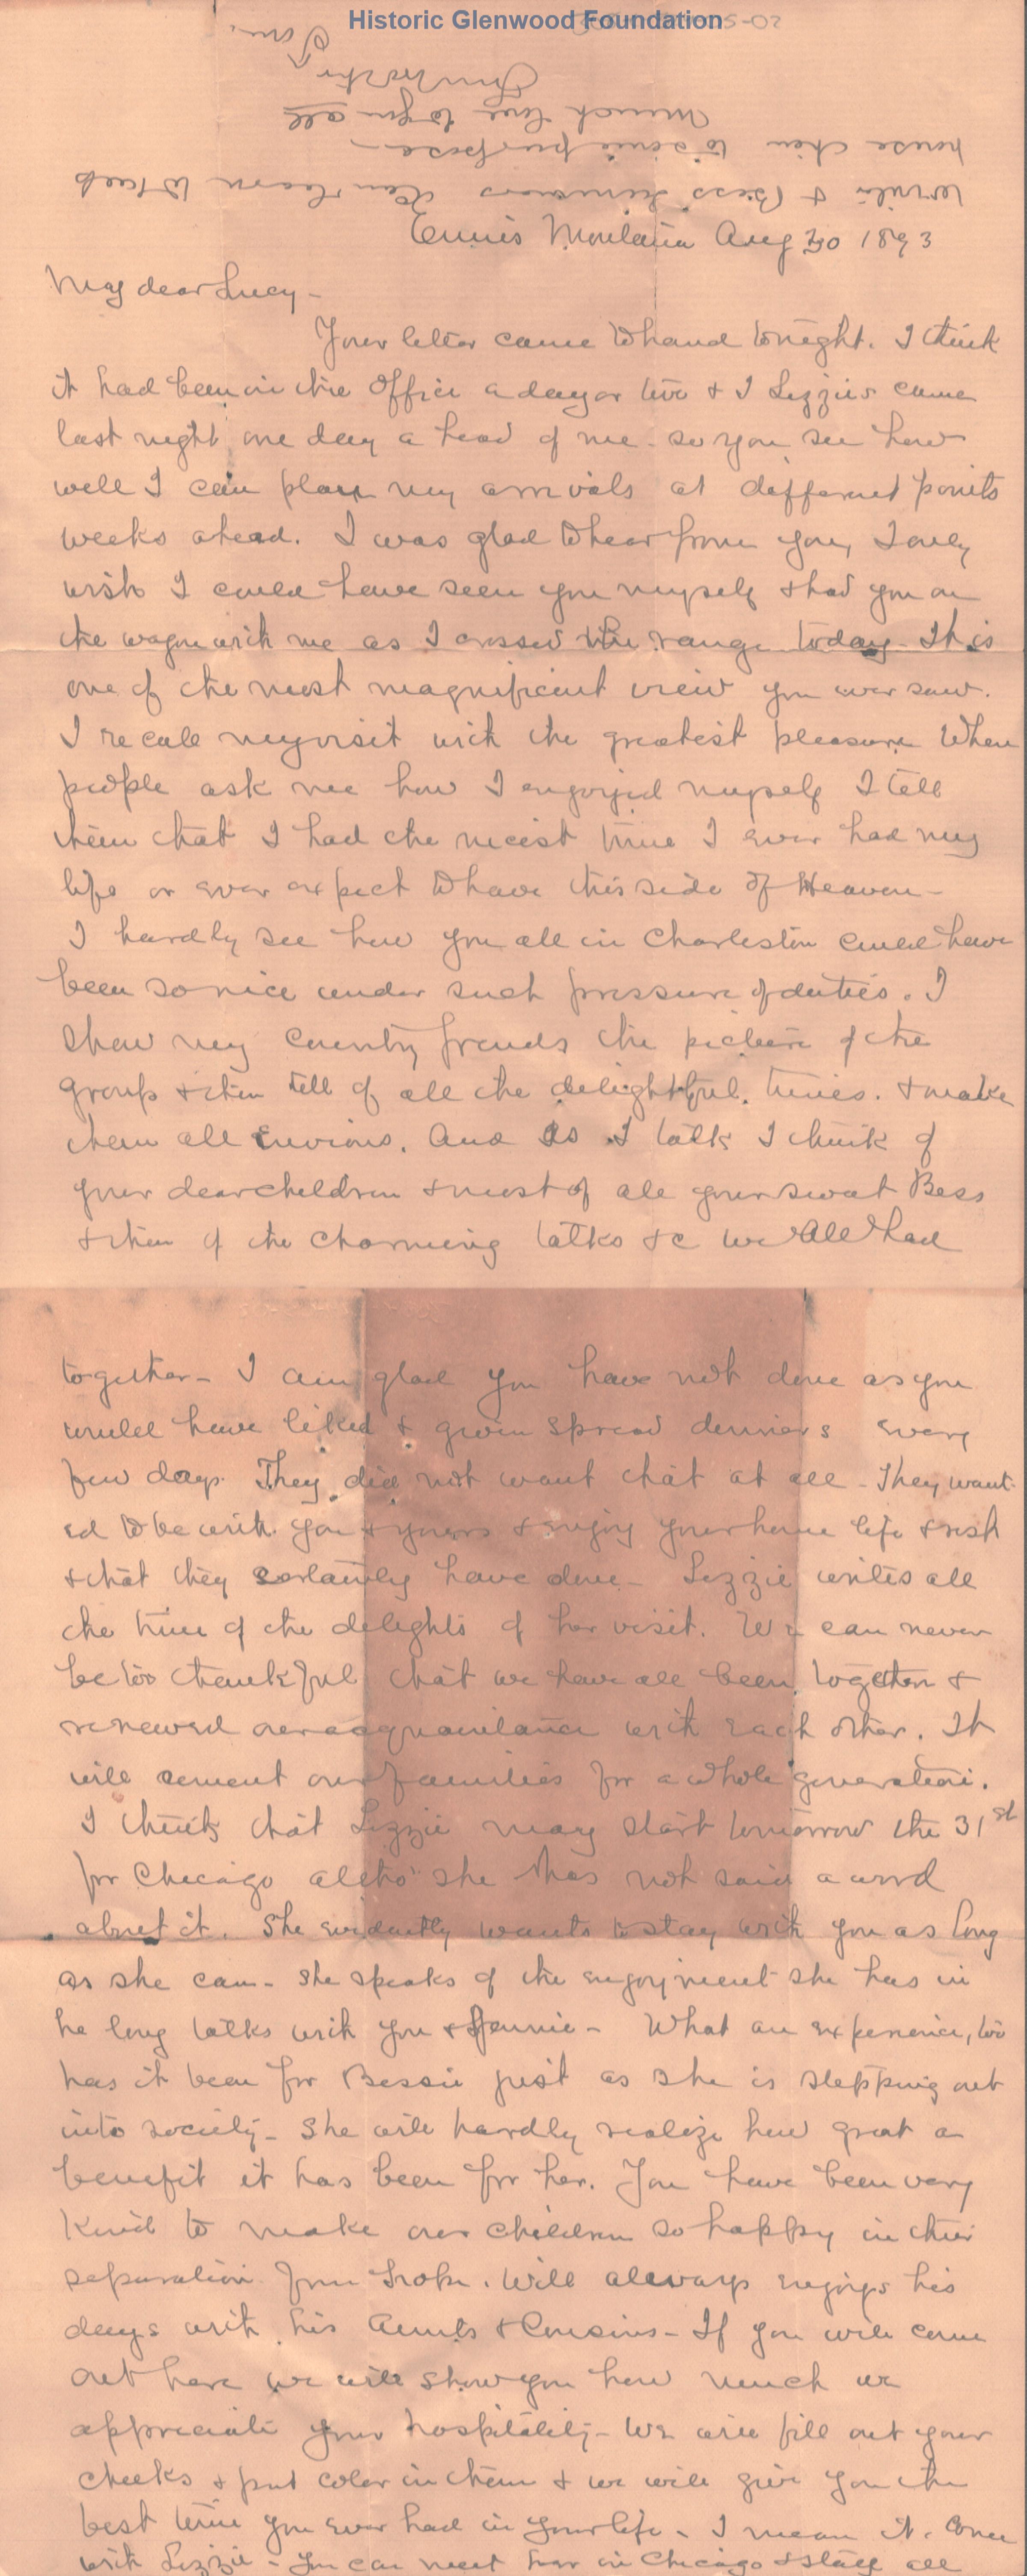 Historic Glenwood Foundation
Ennis Montana Aug 30 1893
My dear Lucy -
Your letter came to hand tonight. I think
it had been in the Office a day or two & I Lizzies came
last night one day a head of me - so you see how
well I can plan my arrivals at different points
weeks ahead. I was glad to hear from you, I only
wish I could have seen you myself & had you on
the wagon with me as I crossed the range today - It is
one of the most magnificent view you ever saw.
I recall my visit with the greatest pleasure When
people ask me how I enjoyed myself I tell
them that I had the nicest time I ever had my
life or ever expect to have this side of Heaven -
I hardly see how you all in Charleston could have
been so nice under such pressure of duties. I
show my country friends the picture of the
group & then tell of all the delightful times. & make
them all envious. And as I talk I think of
your dear children & most of all your sweet Bess
& then of the charming talks &c we all had
together - I am glad you have not done as you
would have liked & given spread dinners every
few days. They did not want that at all - They want-
ed to be with you & yours & enjoy your home life & rest
& that they certainly have done - Lizzie writes all
the time of the delights of her visit. We can never
be too thankful that we have all been together &
renewed our acquaintance with each other. It
will cement our families for a whole generation.
I think that Lizzie may start tomorrow the 31st
for Chicago altho' she has not said a word
about it. She evidently wants to stay with you as long
as she can - She speaks of the enjoyment she has in
he long talks with you & Jennie - What an experience, too
has it been for Bessie just as she is stepping out
into society - She will hardly realize how great a
benefit it has been for her. You have been very
kind to make our children so happy in their
separation from Will always enjoys his
days with his Aunts & Cousins - If you will come
out here we will show you how much we
appreciate your hospitality - We will fill out your
cheeks & put color in them & we will give you the
best time you ever had in your life - I mean it. Come
with Lizzie - You can meet her in Chicago & all
Willie & Bess' lessons Can learn to keep
house then to some purpose -
Much love to you all